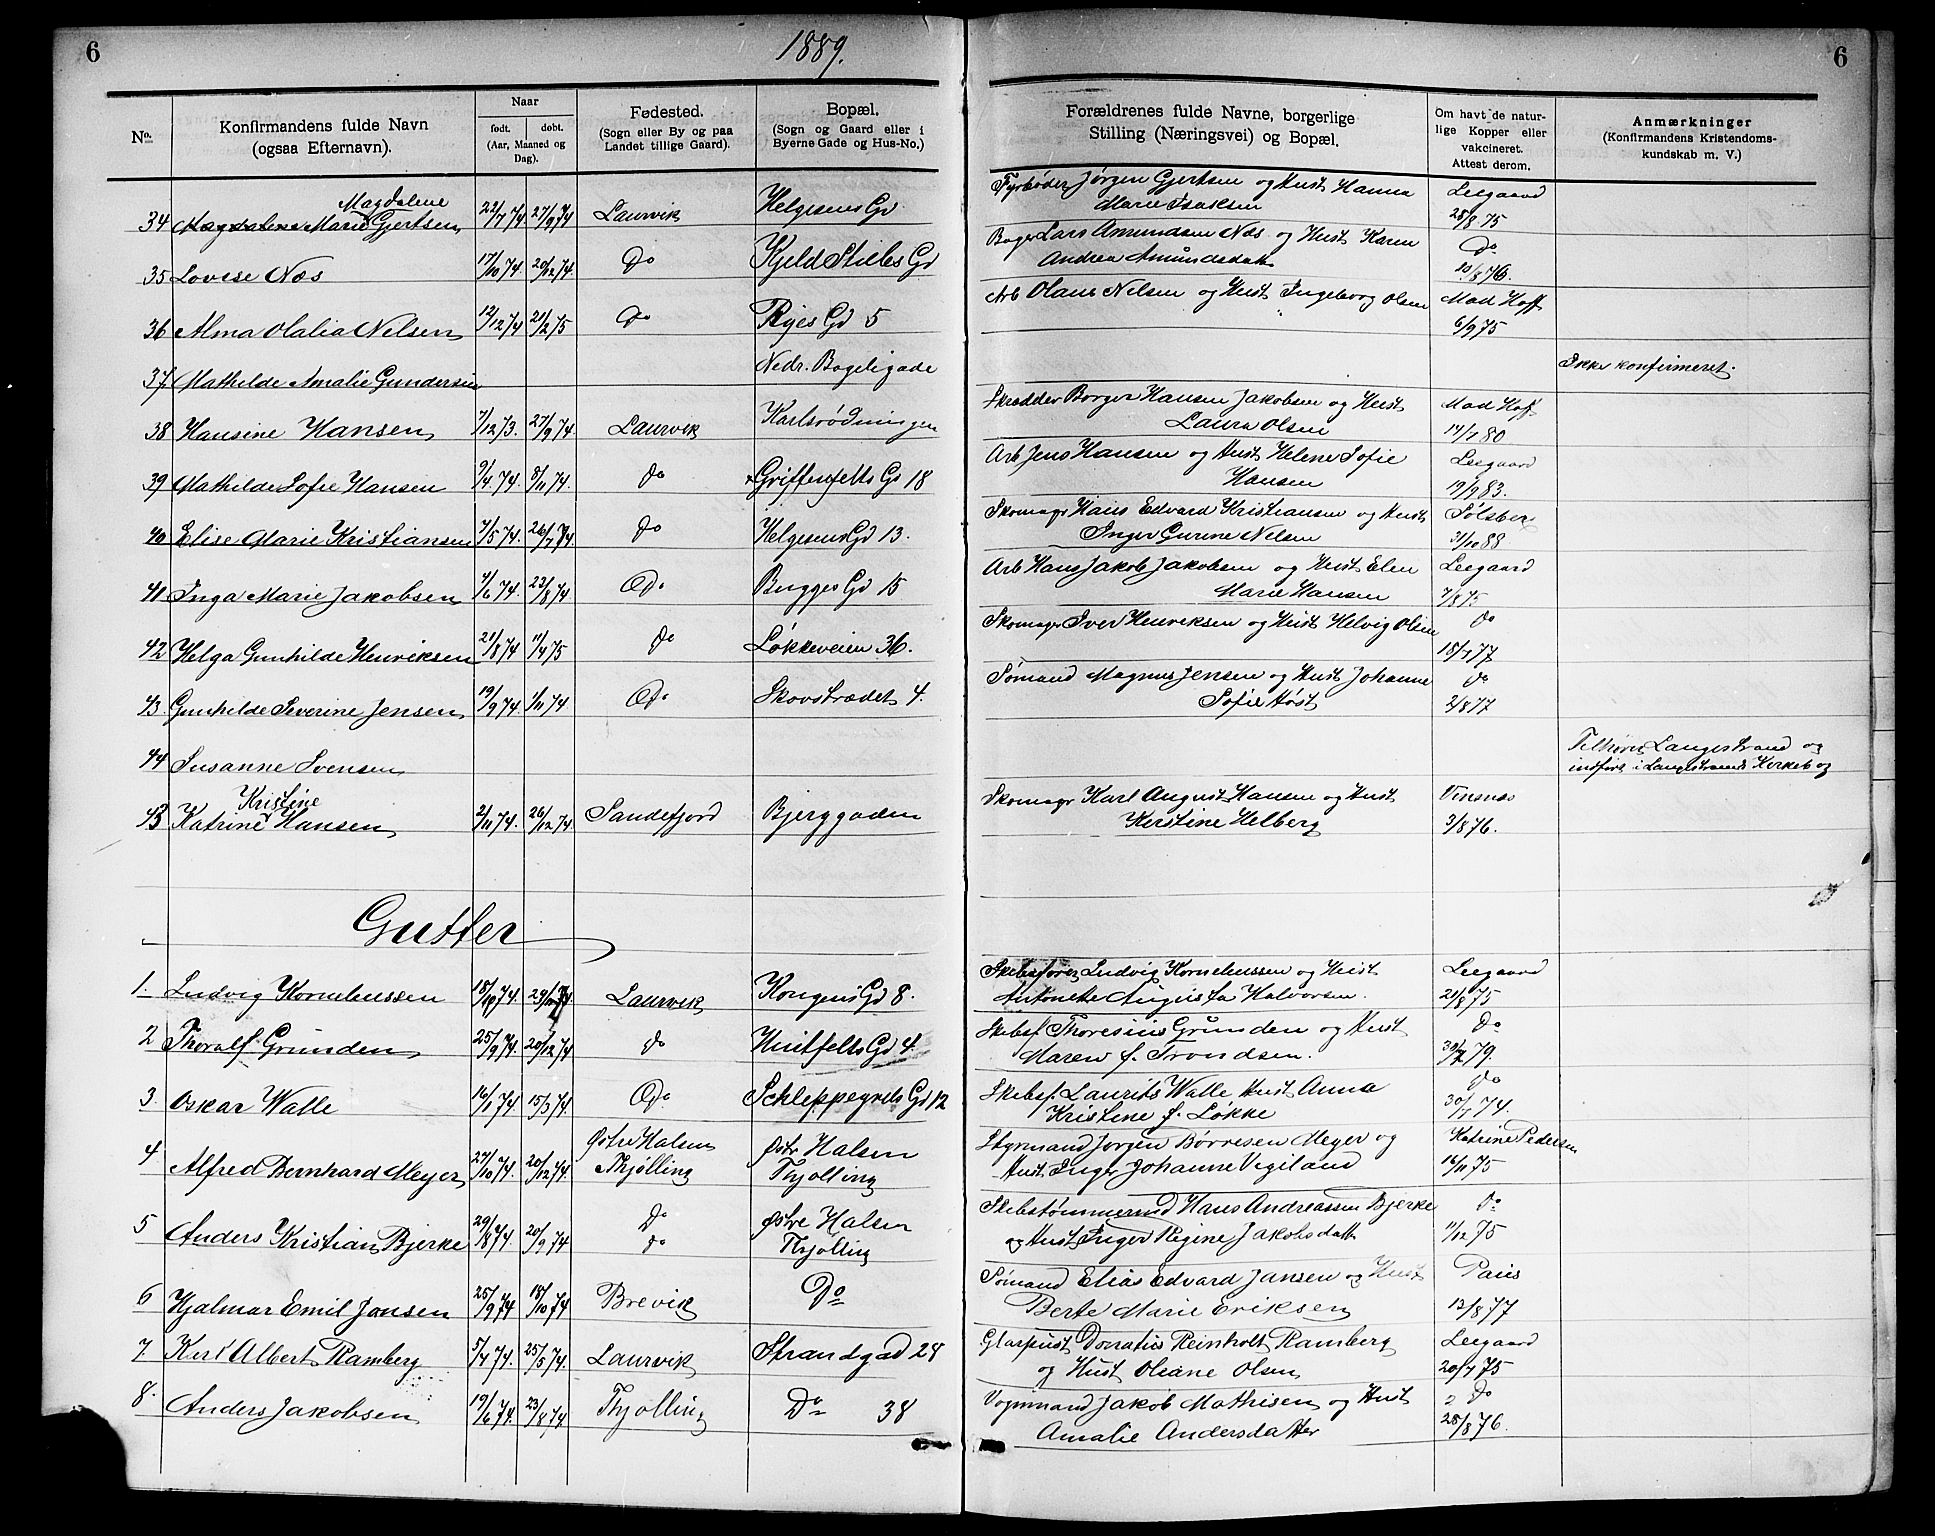 6 1889. 6
No. Konfirmandens fulde Navn (ogsaa Efternavn). Naar født. døbt. (Aar, Maaned og Dag). Fødested. (Sogn eller By og paa Landet tillige Gaard). Bopæl. (Sogn og Gaard eller i Byerne Gade og Hus-No.) Forældrenes fulde Navne, borgerlige Stilling (Næringsvei) og Bopæl. Om havt de naturlige Kopper eller vakcineret. Attest derom. Anmærkninger (Konfirmandens Kristendomskundskab m. V.)
Magdalene Fyrbøder Jørgen Gjertsen og Hust Hanna Leegaard
34 Magdalene Marie Gjertsen 22/7 74 27/9 74 Laurvik Helgesens Gd Marie Isaksen 28/8 75
Bager Lars Amundsen Næs og Hust Karen Do
35 Lovise Næs 17/10 74. 20/12 74. Do Kjeld Stiebs Gd Andrea Amundsdatt 10/8 76.
Arb Olaus Nelsen og Hust Ingeborg Olsen Mad Hoff
36 Alma Olalia Nelsen 12/12 74 21/2 75 Do Ryes Gd 5 6/9 75
37 Mathilde Amalie Gundersen Nedr. Bøgeligade Ikke konfirmeret.
Skrædder Borger Hansen Jakobsen og Hust Mad Hoff
38 Hansine Hansen 7/12 73. 27/9 74 Laurvik Karlsrødningen Laura Olsen 14/7 80
Arb Jens Hansen og Hust Helene Sofie Leegaard
39 Mathilde Sofie Hansen 9/4 74. 8/11 74. do Griffenfelts Gd 18 Hansen 19/9 83.
Skomagr Hans Edvard Kristiansen og Hust Sølsberg
40 Elise Marie Kristiansen 7/5 74. 26/7 74. Do Helgesens Gd 13. Inger Gurine Nelsen 31/10 88
Arb Hans Jakob Jakobsen og Hust Elen Leegaard
41 Inga Marie Jakobsen 4/6 74. 23/8 74 Do Bugges Gd 15 Marie Hansen 7/8 75
Skomager Iver Henriksen og Hust Helvig Olsen do
42 Helga Gunhilde Henriksen 21/8 74 11/4 75 do Løkkeveien 36. 18/7 77
Sømand Magnus Jensen og Hust Johanne do
43 Gunhilde Severine Jensen 19/9 74. 1/11 74 Do Skovstrædet 4. Sofie Høst 2/8 77
Tilhører Langestrand og
44 Susanne Svensen indført i Langestrands Kirkebog
Kristine Skomagr Karl August Hansen og Hust Vinsnes
45 Katrine Hansen 2/11 74. 26/12 74 Sandefjord Bjerggaden Kerstine Helberg 3/8 76.
Gutter
Skibsfører Ludvig Korneliussen og Hust Leegaard
1. Ludvig Korneliussen 18/10 74. Laurvik Kongens Gd 8. Antonette Augusta Halvorsen. 21/8 75
Skibsf. Thoresius Grunden og Hust Do
2 Thoralf Grunden 25/9 74. 20/12 74 do Huitfelts Gd 4. Maren f. Trondsen. 79.
Skibsf. Laurits Walle Hust Anna do
3. Oskar Walle 16/1 74 15/3 74 Do Schleppegrels Gd 12 Kristine f. Løkke 30/7 74.
Østre Halsen Østr Halsen Styrmand Jørgen Børresen Meyer og Katrine Pedersen
4 Alfred Bernhard Meyer 27/10 74. 20/12 74. Thjølling Thjølling Hust. Inger Johanne Vegiland 16/11 75
Do Østre Halsen Skibstømmermd Hans Andreassen Bjerke Do
5 Anders Kristian Bjerke 29/8 74. 20/9 74 do Thjølling og Hust Inger Regine Jakobsdatt 11/12 75
Sømand Elias Edvard Jansen og Hust Paus
6 Hjalmar Emil Jansen 25/9 74 18/10 74 Brevik Do Berte Marie Eriksen 13/8 77
Glaspust Donatus Reinholt Ramberg Leegaard
7. Karl Albert Ramberg 3/4 74. 25/5 74. Laurvik Strandgad 28 og Hust Oleane Olsen 20/7 75
Vognmand Jakob Mathisen og Hust Do
8. Anders Jakobsen 19/6 74. 23/8 74 Thjølling Do 38 Amalie Andersdatter 28/8 76.